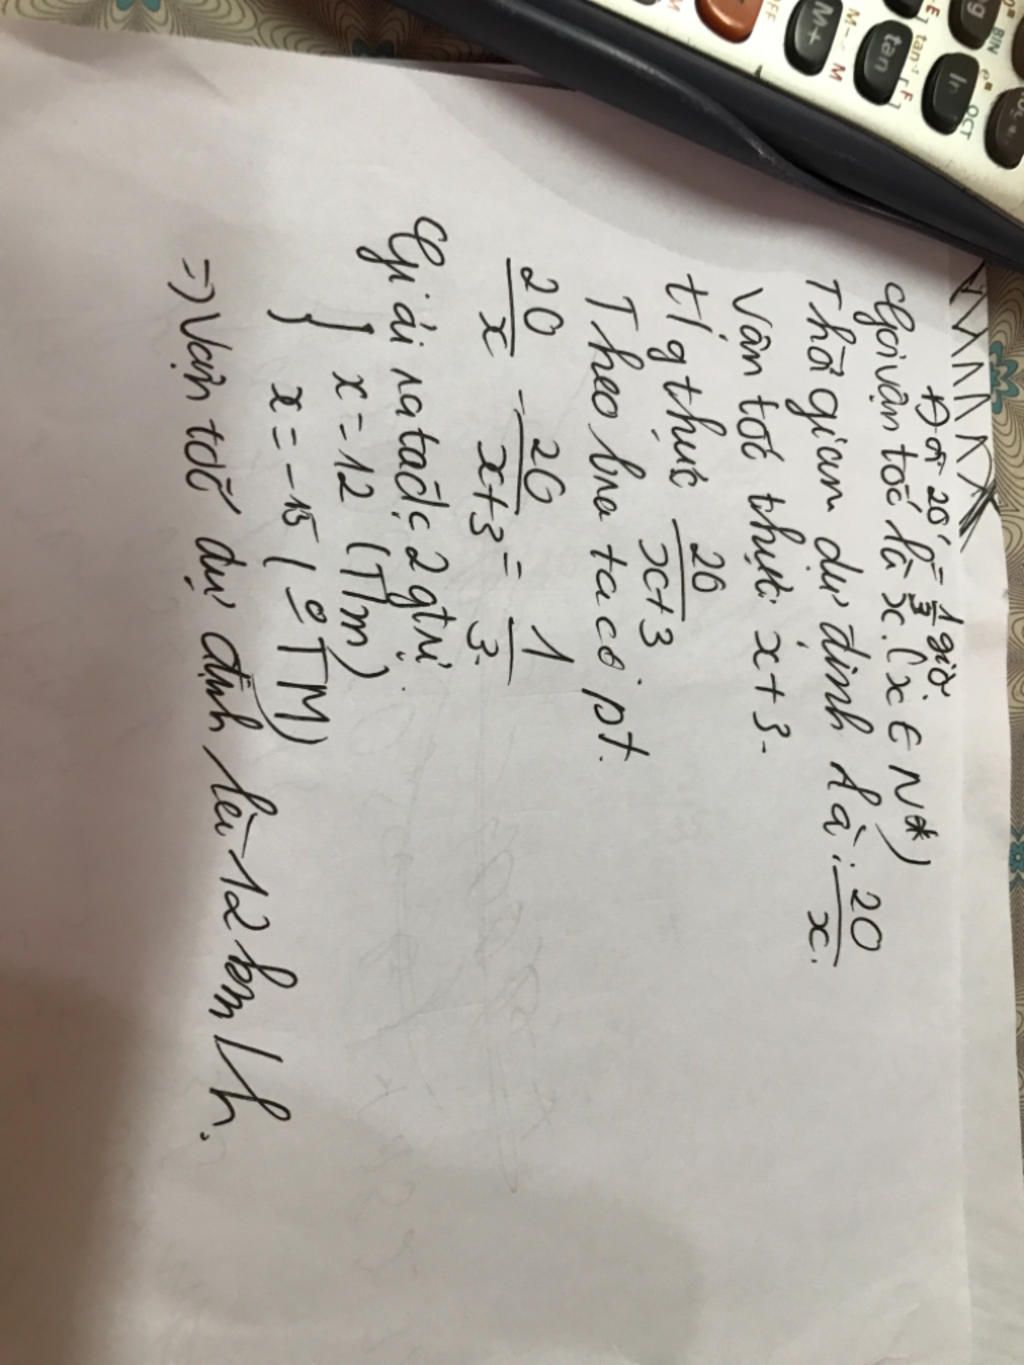 Đổi 20' = 1/3 giờ
Gọi vận tốc là x. (x ∈ N*)
Thời gian dự định là: 20/x.
Vận tốc thực: x+3.
t/g thực 20/x+3
Theo bra ta có pt.
20/x - 20/x+3 = 1/3.
Giải ra ta đc 2 gtrị.
} x = 12 (TM)
x = -15 (oTM)
=> Vận tốc dự định là 12 km/h.
M+
M-
M
OFF
tan
tan⁻¹
F
E
ln
OCT
BIN